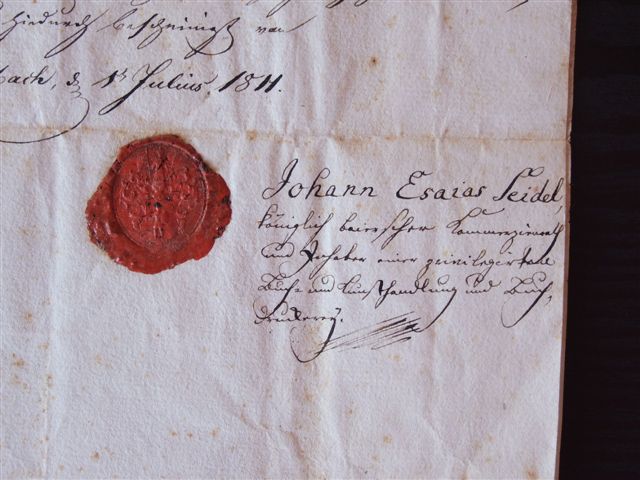 hiedurch bescheinigt von
bach, d. 1t Julius, 1811.
Johann Esaias Seidel,
königlich baierscher Kommerzienrath
und Inhaber einer privilegirten
Buch- und Kunsthandlung und Buch-
druckerey.